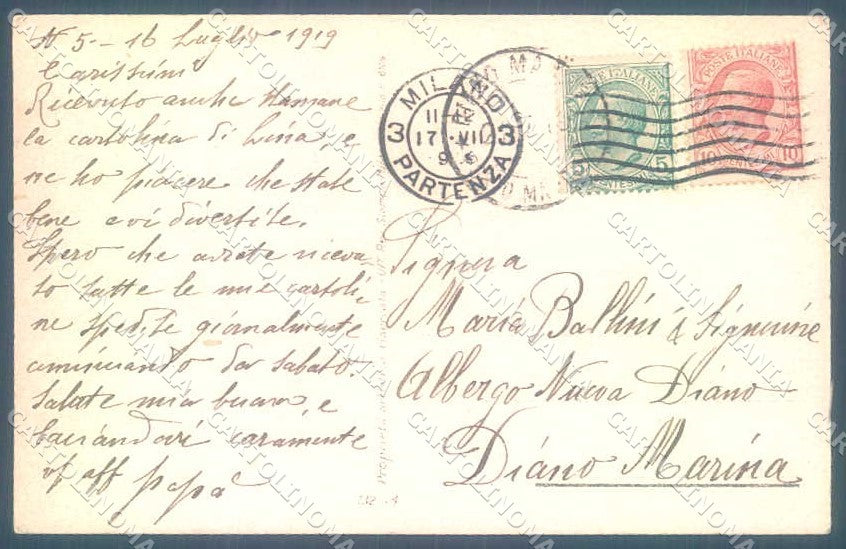 N 5 - 16 Luglio 1919
Carissimi
Ricevuto anche stamane
la cartolina di Luna, e
ne ho piacere che state
bene e vi divertite.
Spero che avrete ricevu-
to tutte le mie cartoli-
ne spedite giornalmente
cominciando da sabato.
Salute mia buona, e
baciandovi caramente
aff papà
MILANO
3 3
17 VII
PARTENZA
POSTE ITALIANE
5 5
POSTE ITALIANE
10 10
Signora
Maria Ballini & Signorine
Albergo Nuova Diano
Diano Marina
CARTOLINOMANIA